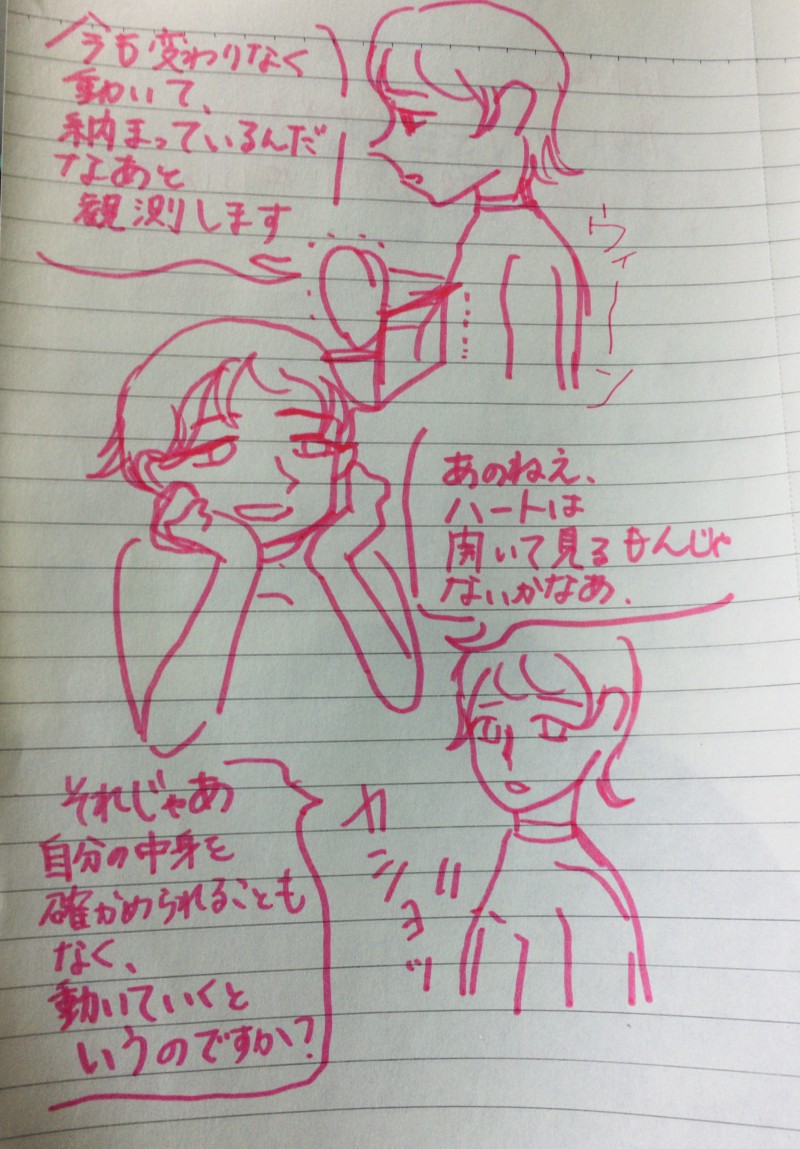 今も変わりなく
動いて、
納まっているんだ
なあと
観測します
ウィーン
あのねえ、
ハートは
開いて見るもんじゃ
ないかなあ.
それじゃあ
自分の中身を
確かめられることも
なく、
動いていくと
いうのですか？
ガションッ